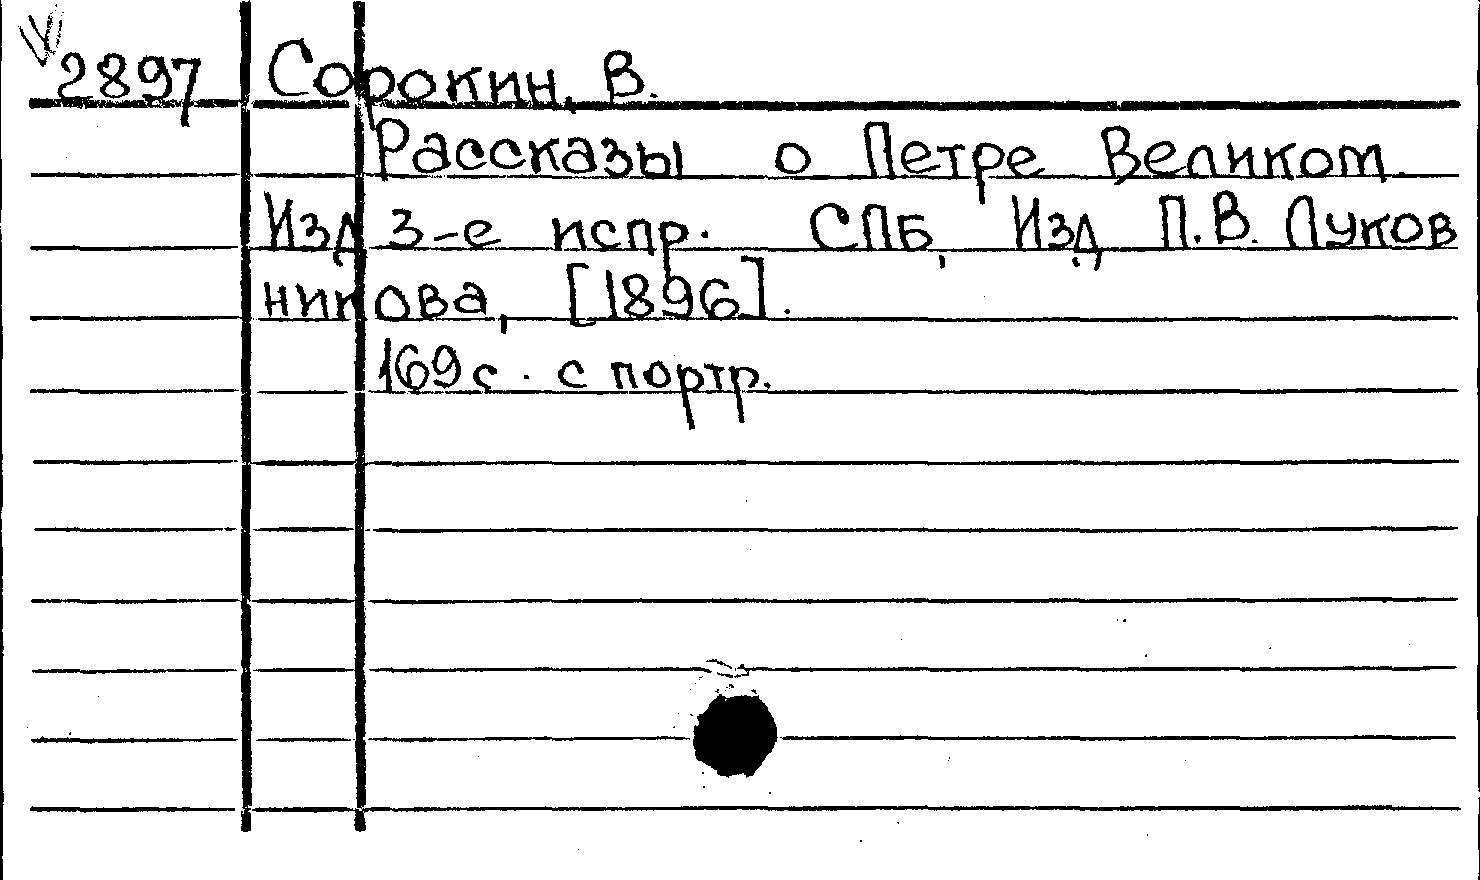 2897 Сорокин, В.
Рассказы о Петре Великом.
Изд 3-е испр. СПБ, Изд. П.В. Луков
никова, [1896].
169 с. с портр.